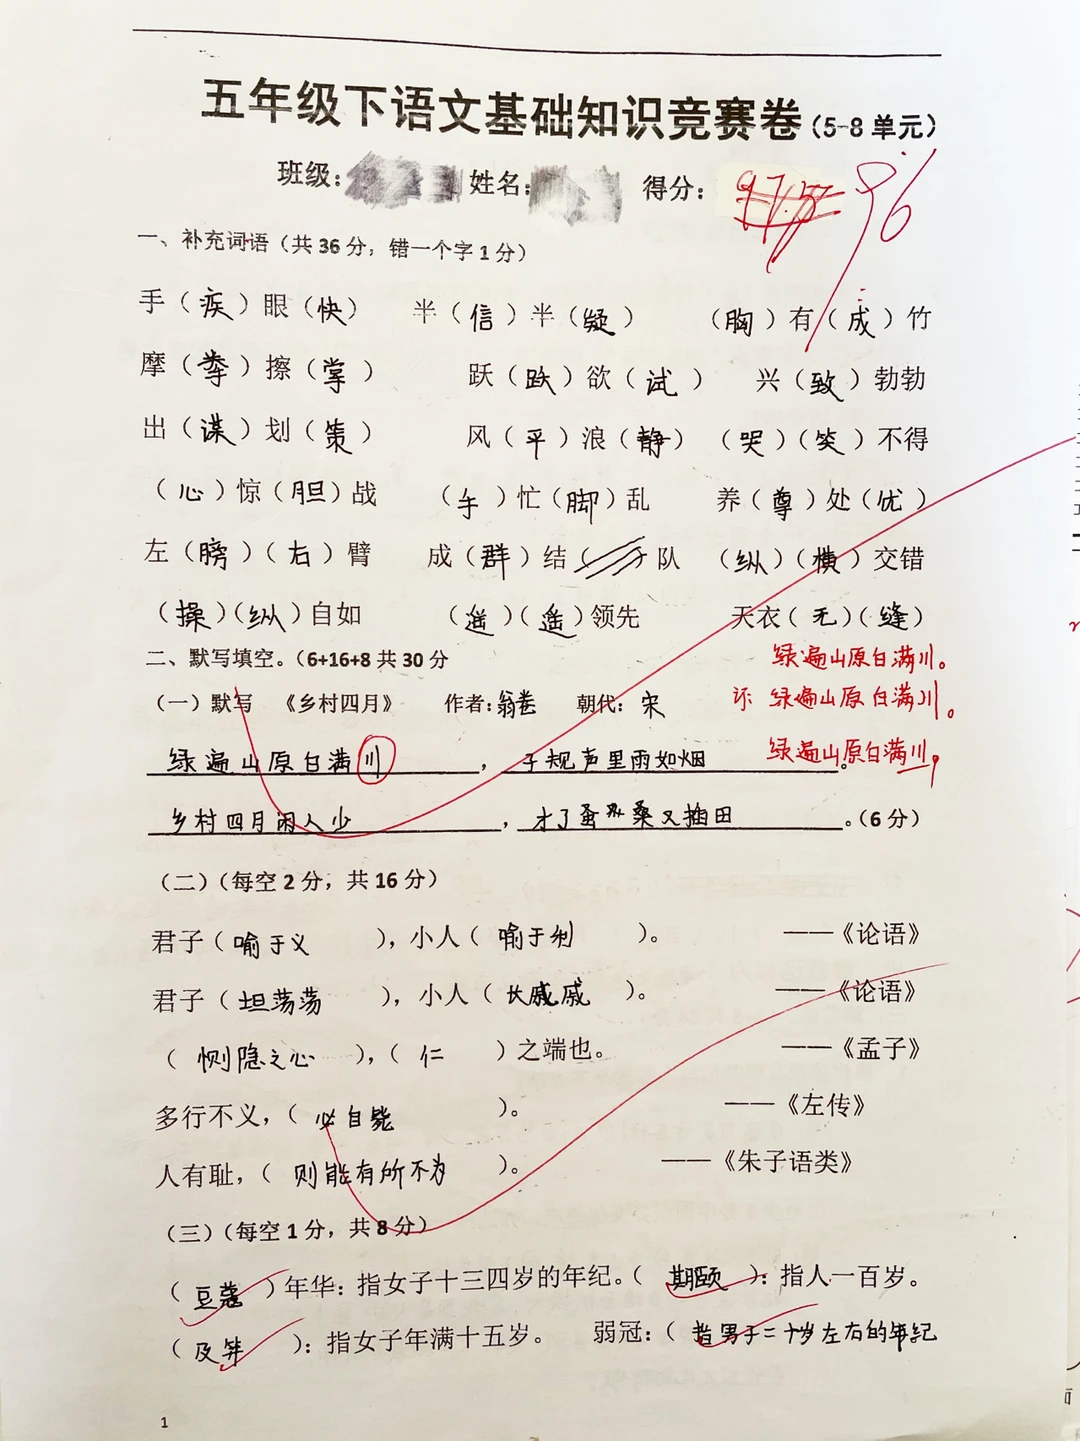 五年级下语文基础知识竞赛卷(5-8单元)
班级: 姓名: 得分: 97.5 96
一、补充词语(共36分,错一个字1分)
手(疾)眼(快) 半(信)半(疑) (胸)有(成)竹
摩(拳)擦(掌) 跃(跃)欲(试) 兴(致)勃勃
出(谋)划(策) 风(平)浪(静) (哭)(笑)不得
(心)惊(胆)战 (手)忙(脚)乱 养(尊)处(优)
左(膀)(右)臂 成(群)结( )队 (纵)(横)交错
(操)(纵)自如 (遥)(遥)领先 天衣(无)(缝)
二、默写填空。(6+16+8共30分 绿遍山原白满川。
(一)默写 《乡村四月》 作者:翁卷 朝代:宋 绿遍山原白满川。
绿遍山原白满川,子规声里雨如烟。 绿遍山原白满川,
乡村四月闲人少,才了蚕桑又插田。(6分)
(二)(每空2分,共16分)
君子(喻于义),小人(喻于利)。 ——《论语》
君子(坦荡荡),小人(长戚戚)。 ——《论语》
(恻隐之心),(仁)之端也。 ——《孟子》
多行不义,(必自毙)。 ——《左传》
人有耻,(则能有所不为)。 ——《朱子语类》
(三)(每空1分,共8分)
(豆蔻)年华:指女子十三四岁的年纪。(期颐):指人一百岁。
(及笄):指女子年满十五岁。 弱冠:(指男子二十岁左右的年纪
1